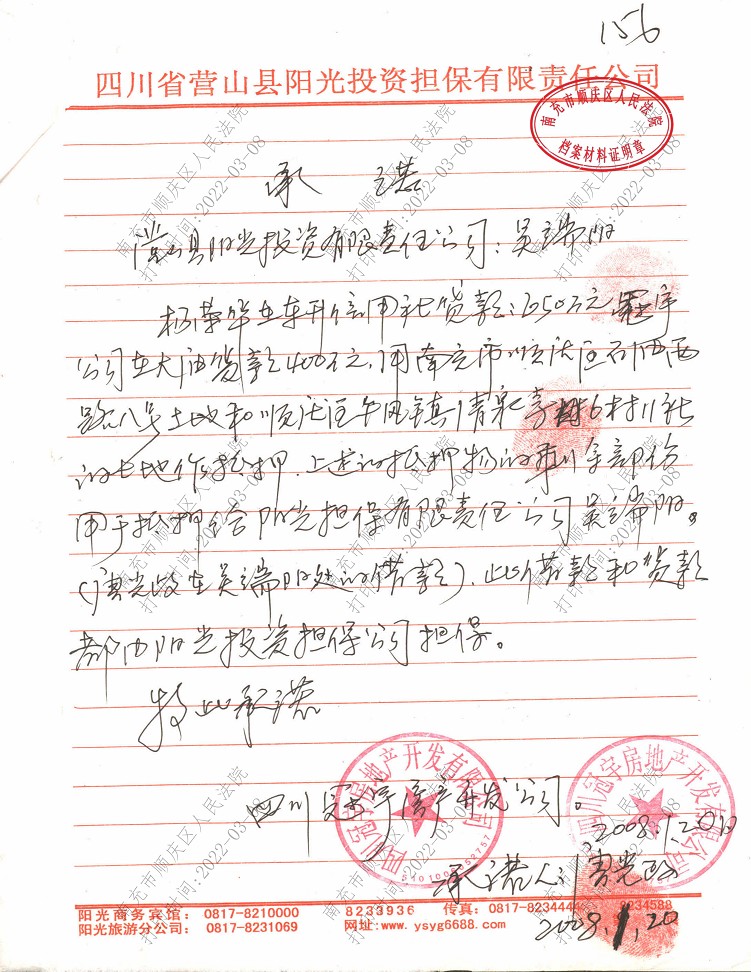 156
四川省营山县阳光投资担保有限责任公司
南充市顺庆区人民法院
档案材料证明章
承 诺
营山县阳光投资有限责任公司：吴端阳
杨荣华在车开信用社贷款：650万元 冠宇
公司在大通贷款400万元，用南充市顺庆区石门西
路八号土地和顺庆区午凤镇清泉寺村6村11社
的土地作抵押，上述的抵押物的剩余部份
用于抵押给阳光担保有限责任公司吴端阳。
（唐光政在吴端阳处的借款），此借款和贷款
都由阳光投资担保公司担保。
特此承诺
四川冠宇房产开发公司。
2008.1.20日
承诺人：唐光政
2008.1.20
四川冠宇房地产开发有限公司
四川冠宇房地产开发有限公司
阳光商务宾馆： 0817-8210000 8233936 传真：0817-8234444 8234588
阳光旅游分公司： 0817-8231069 网址:www.ysyg6688.com
南充市顺庆区人民法院
打印时间:2022-03-08